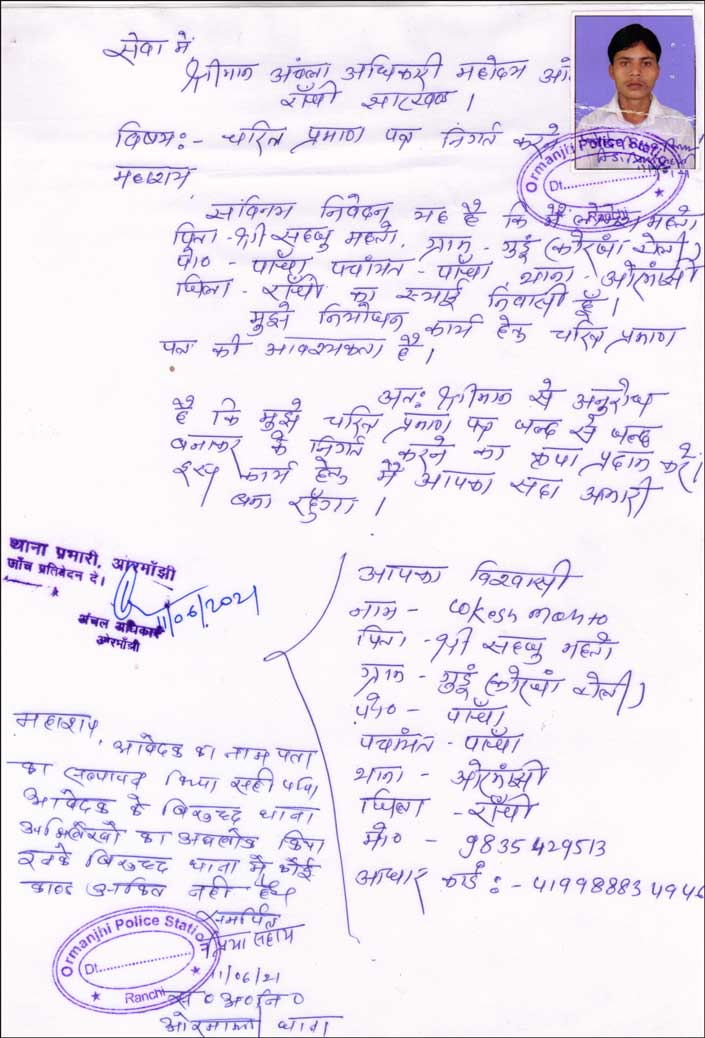 सेवा में,
श्रीमान अंचला अधिकारी महोदय
राँची झारखण्ड ।
विषय:- चरित्र प्रमाण पत्र निर्गत करने
महाशय
Ormanjhi Police Stati
Dt
सविनय निवेदन यह है कि मैं लोकेश महतो
पिता - श्री सहजु महतो, ग्राम - गुडू
पो० - पाँचा पंचायत - पाँचा, थाना - ओरमाँझी
जिला - राँची का स्थाई निवासी हूँ ।
मुझे नियोजन कार्य हेतु चरित्र प्रमाण
पत्र की आवश्यकता है ।
अत: श्रीमान से अनुरोध
है कि मुझे चरित्र प्रमाण पत्र जल्द से जल्द
बनाकर के निर्गत करने का कृपा प्रदान करें।
इस कार्य हेतु मैं आपका सदा अभारी
बना रहूँगा ।
थाना प्रभारी, ओरमाँझी
जाँच प्रतिबेदन दें।
11/06/2021
अंचल अधिकारी
ओरमाँझी
आपका विश्वासी
नाम - Lokesh mahto
पिता - श्री सहजु महतो
ग्राम - गुडू
पो० - पाँचा
पंचायत - पाँचा
थाना - ओरमाँझी
जिला - राँची
मो० - 9835429513
आधार कार्ड : - 419988834946
महाशय,
आवेदक का नाम पता
का सत्यापन किया सही पाया
आवेदक के विरुद्ध थाना
अभिलेखों का अवलोकन किया
इनके विरुद्ध थाना में कोई
काण्ड अंकित नहीं है
समर्पित
11/06/21
स० अ० नि०
ओरमाँझी थाना
Ormanjhi Police Statio
Dt.
Ranchi